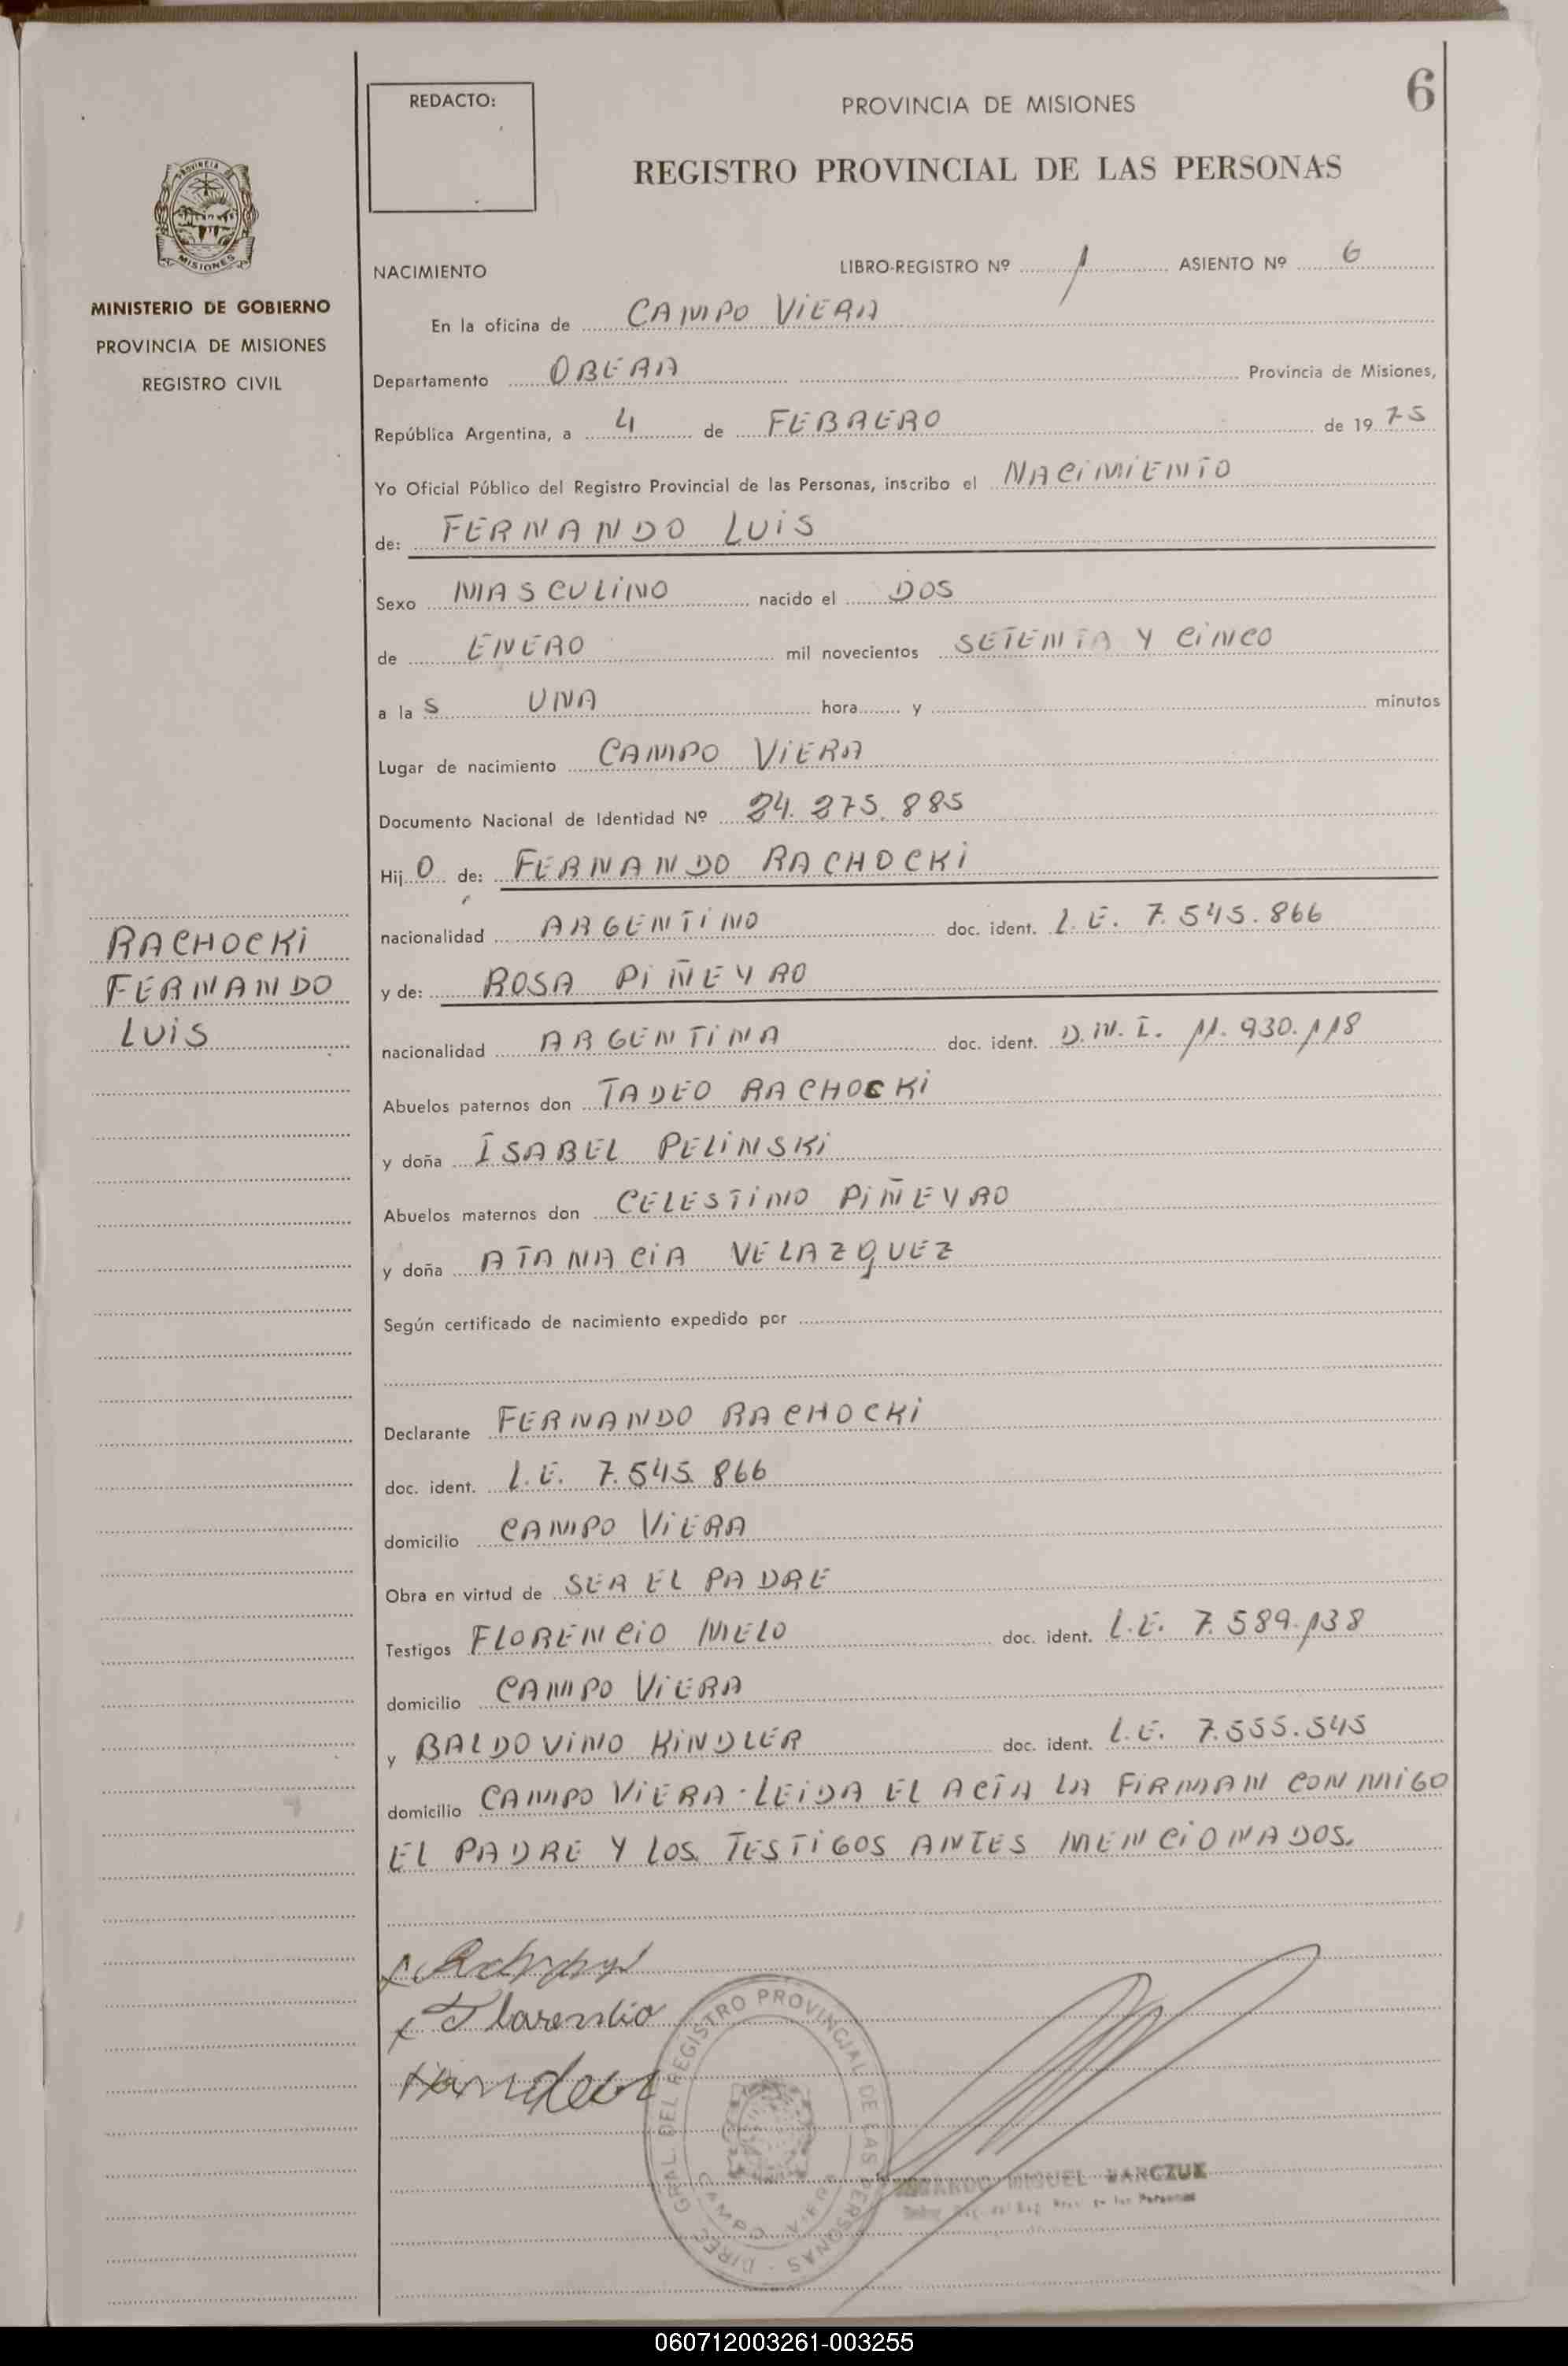 REDACTO:
PROVINCIA DE MISIONES
6
REGISTRO PROVINCIAL DE LAS PERSONAS
PROVINCIA DE
MISIONES
MINISTERIO DE GOBIERNO
PROVINCIA DE MISIONES
REGISTRO CIVIL
NACIMIENTO LIBRO-REGISTRO Nº 1 ASIENTO Nº 6
En la oficina de CAMPO VIERA
Departamento OBERA Provincia de Misiones,
República Argentina, a 4 de FEBRERO de 1975
Yo Oficial Público del Registro Provincial de las Personas, inscribo el NACIMIENTO
de: FERNANDO LUIS
Sexo MASCULINO nacido el DOS
de ENERO mil novecientos SETENTA Y CINCO
a la S UNA hora y minutos
Lugar de nacimiento CAMPO VIERA
Documento Nacional de Identidad Nº 24.275.885
Hij O de: FERNANDO RACHOCKI
nacionalidad ARGENTINO doc. ident. L.E. 7.545.866
y de: ROSA PIÑEYRO
nacionalidad ARGENTINA doc. ident. D.N.I. 11.930.118
RACHOCKI
FERNANDO
LUIS
Abuelos paternos don TADEO RACHOCKI
y doña ISABEL PELINSKI
Abuelos maternos don CELESTINO PIÑEYRO
y doña ATANACIA VELAZQUEZ
Según certificado de nacimiento expedido por
Declarante FERNANDO RACHOCKI
doc. ident. L.E. 7.545.866
domicilio CAMPO VIERA
Obra en virtud de SER EL PADRE
Testigos FLORENCIO MELO doc. ident. L.E. 7.589.138
domicilio CAMPO VIERA
y BALDOVINO KINDLER doc. ident. L.E. 7.555.545
domicilio CAMPO VIERA. LEIDA EL ACTA LA FIRMAN CONMIGO
EL PADRE Y LOS TESTIGOS ANTES MENCIONADOS.
Florencio
DIREC. GRAL. DEL REGISTRO PROVINCIAL DE LAS PERSONAS
CAMPO VIERA
MIGUEL
060712003261-003255